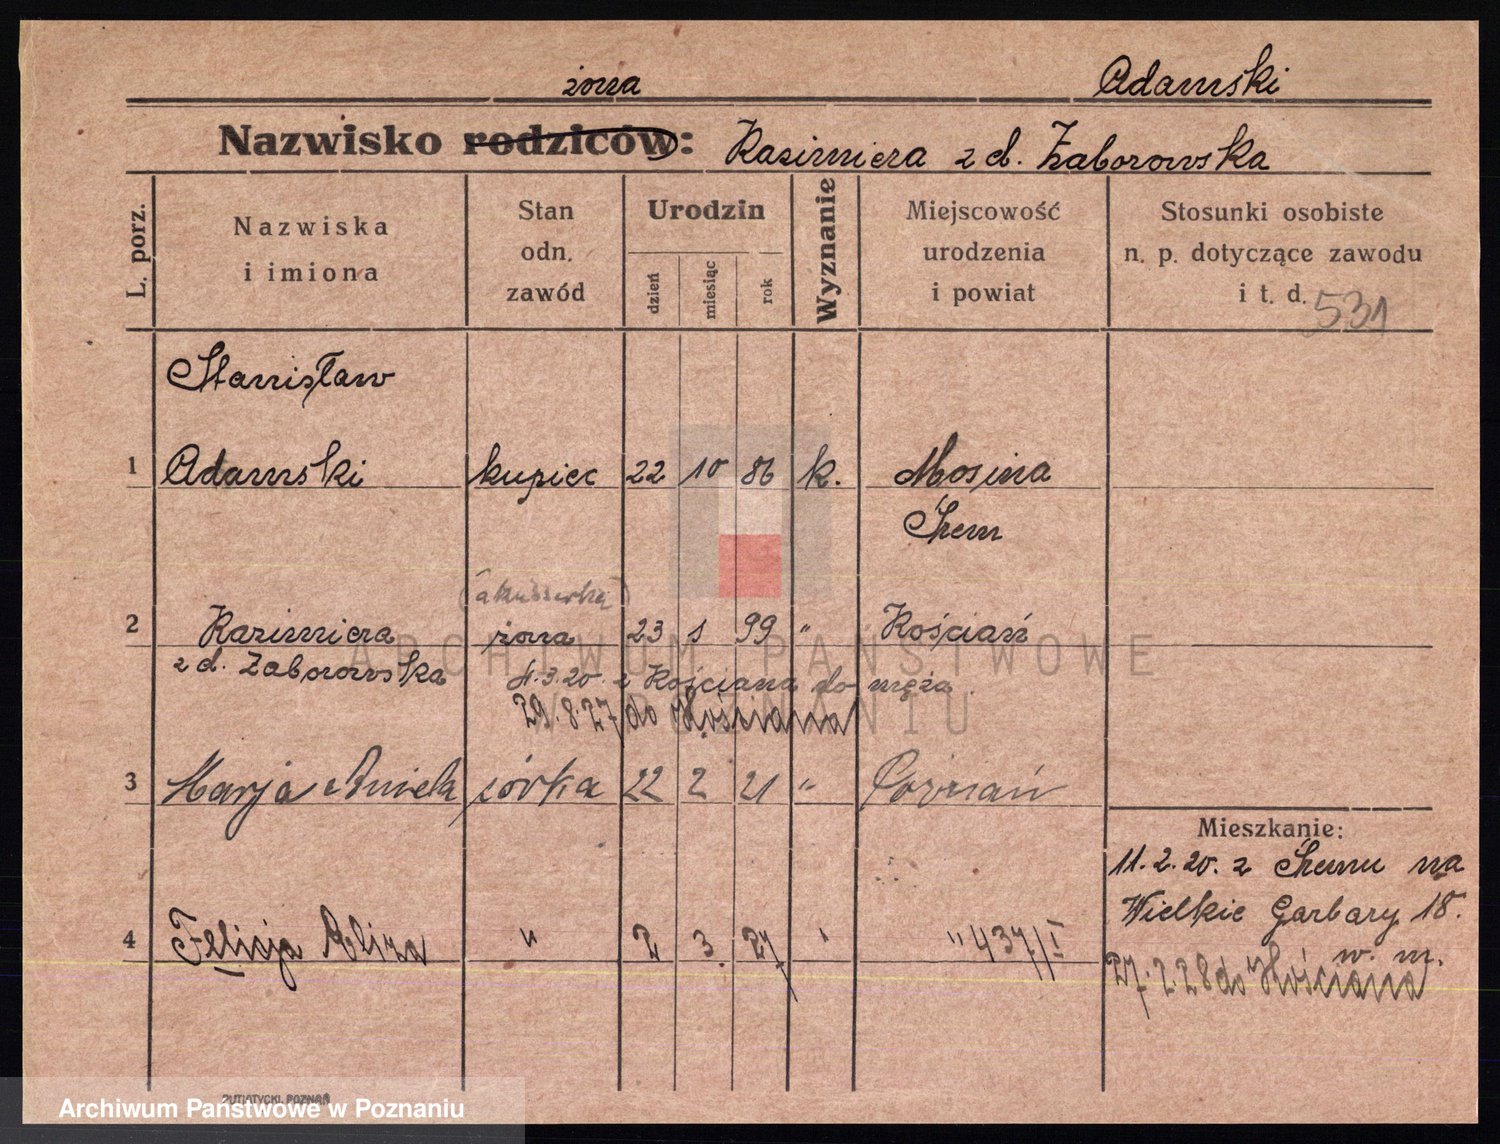 żona Adamski
Nazwisko rodziców: Kazimiera z d. Zaborowska
L. porz.
Nazwiska
i imiona
Stan
odn.
zawód
Urodzin
dzień
miesiąc
rok
Wyznanie
Miejscowość
urodzenia
i powiat
Stosunki osobiste
n. p. dotyczące zawodu
i t. d.
531
Stanisław
1 Adamski kupiec 22 10 86 k. Mosina
Śrem
(akuszerka)
2 Kazimiera żona 23 1 99 " Kościan
z d. Zaborowska 4.3.20. z Kościana do męża.
29.8.27 do Kościana
3 Marja Aniela córka 22 2 21 " Poznań
Mieszkanie:
11.2.20. z Śremu na
Wielkie Garbary 18.
w. m.
4 Felicja Aliza " 2 3 27 " " 437/I
27.2.28 do Kościana
ARCHIWUM PAŃSTWOWE
W POZNANIU
PUTIATYCKI, POZNAŃ
Archiwum Państwowe w Poznaniu